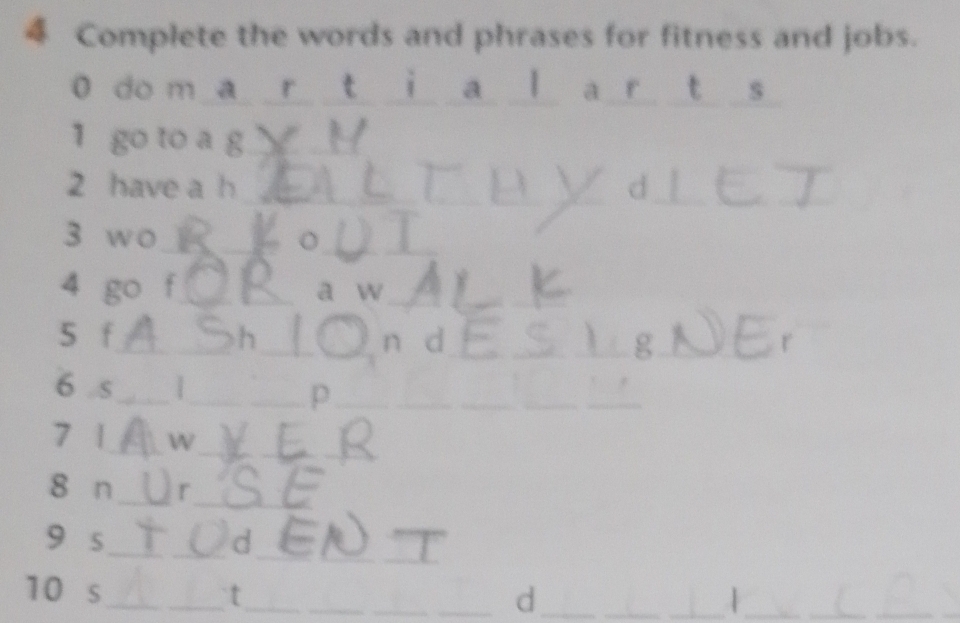 4 Complete the words and phrases for fitness and jobs.
0 do m a r t i a l a r t s
1 go to a g Y M
2 have a h E A L T H Y d I E T
3 wo R K o U T
4 go f O R a w A L K
5 f A S h I O n d E S I g N E r
6 s _ l _ _ p _ _ _ _ _
7 l A w Y E R
8 n U r S E
9 s T U d E N T
10 s _ _ t _ _ _ _ d _ _ _ l _ _ _ _